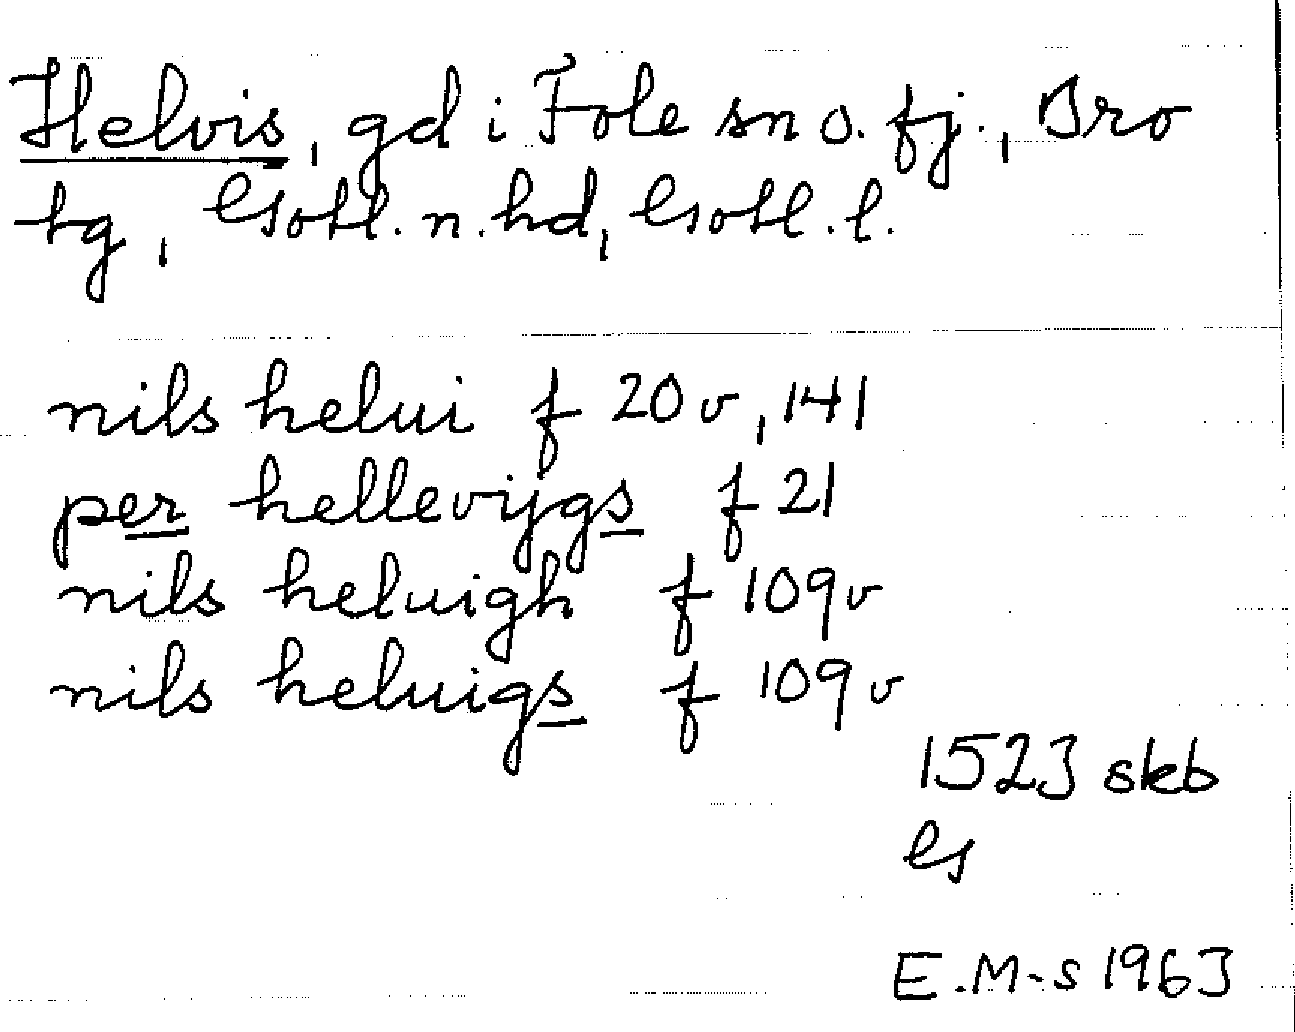 Helvis, gd i Fole sn o. fj., Bro
tg, Gotl. n. hd, Gotl. l.
nils helui f 20 v, 141
per hellevijgs f 21
nils heluigh f 109v
nils heluigs f 109 v
1523 skb
G
E.M-s 1963